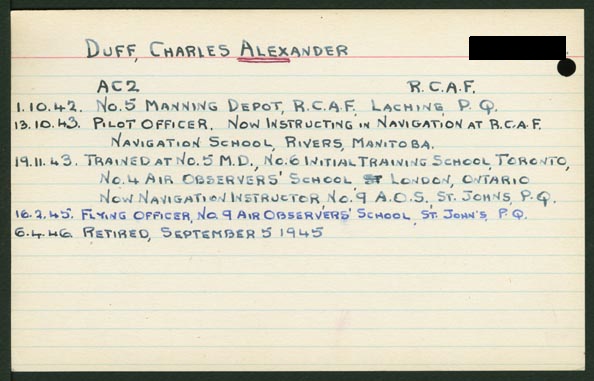 DUFF, CHARLES ALEXANDER
AC2 R.C.A.F.
1.10.42. No.5 MANNING DEPOT, R.C.A.F. LACHINE, P.Q.
13.10.43. PILOT OFFICER. NOW INSTRUCTING IN NAVIGATION AT R.C.A.F.
NAVIGATION SCHOOL, RIVERS, MANITOBA.
19.11.43. TRAINED AT No.5 M.D., No.6 INITIAL TRAINING SCHOOL TORONTO,
No.4 AIR OBSERVERS' SCHOOL LONDON, ONTARIO
NOW NAVIGATION INSTRUCTOR, No.9 A.O.S., ST. JOHNS, P.Q.
16.2.45. FLYING OFFICER, No.9 AIR OBSERVERS' SCHOOL, ST. JOHN'S, P.Q.
6.4.46. RETIRED, SEPTEMBER 5 1945